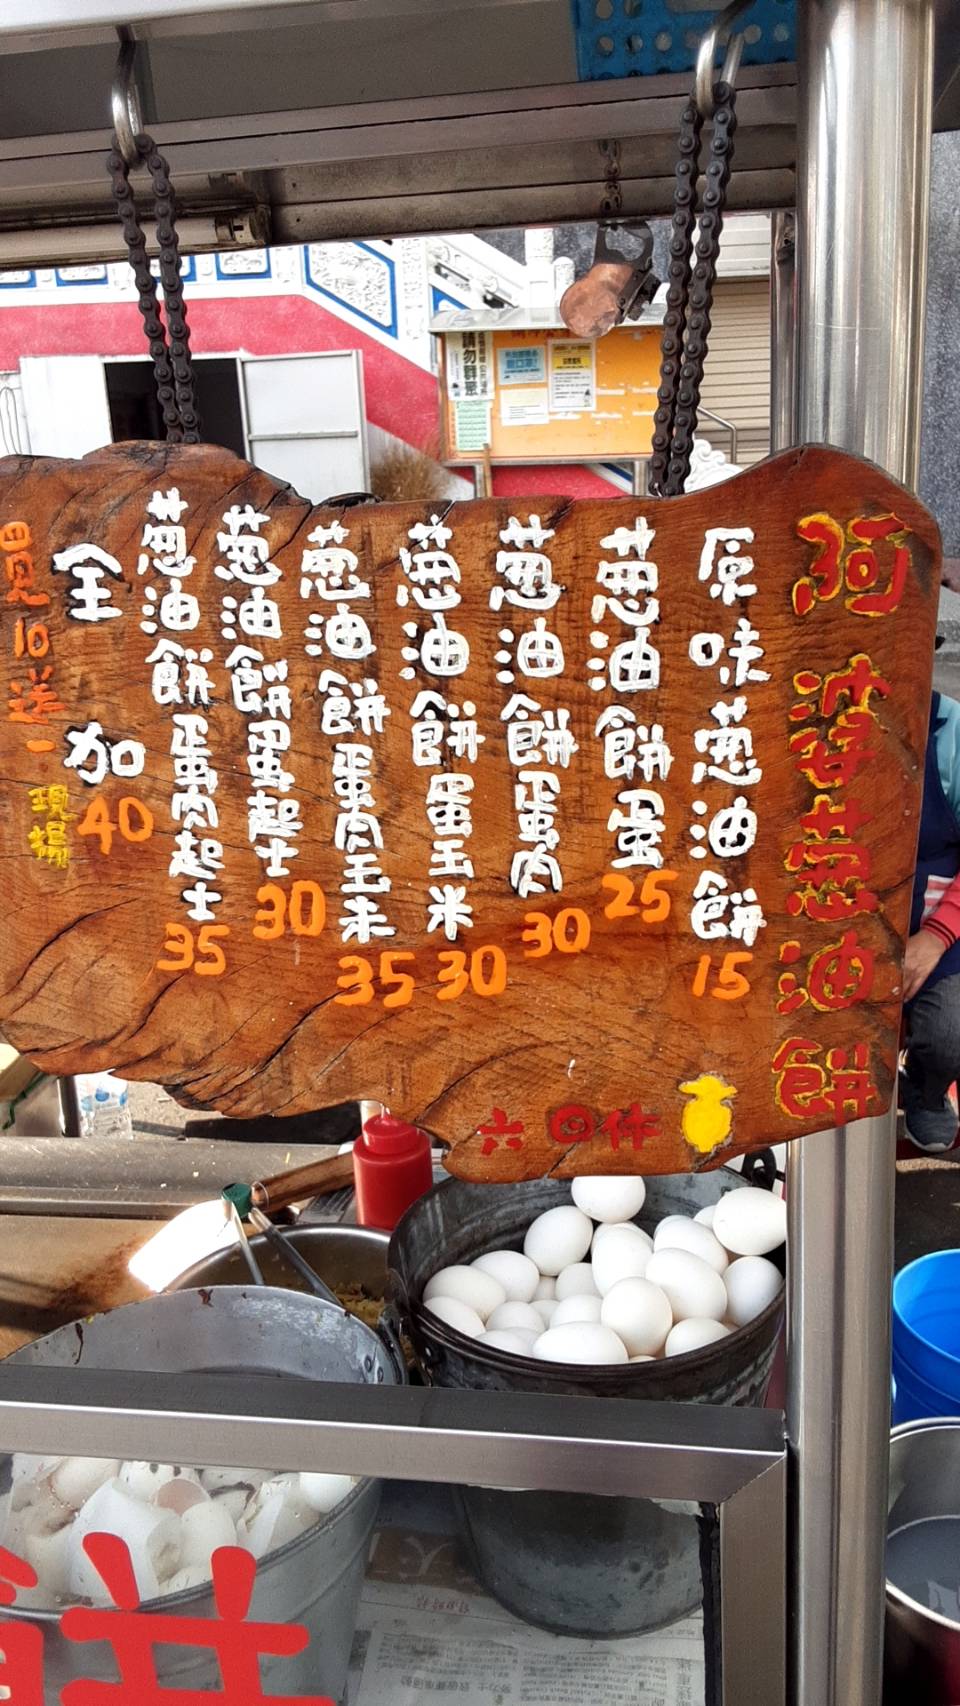 阿婆葱油餅
原味葱油餅 15
葱油餅蛋 25
葱油餅蛋肉 30
葱油餅蛋玉米 30
葱油餅蛋肉玉米 35
葱油餅蛋起士 30
葱油餅蛋肉起士 35
全加 40
買10送一
現場
六日休
請勿群聚